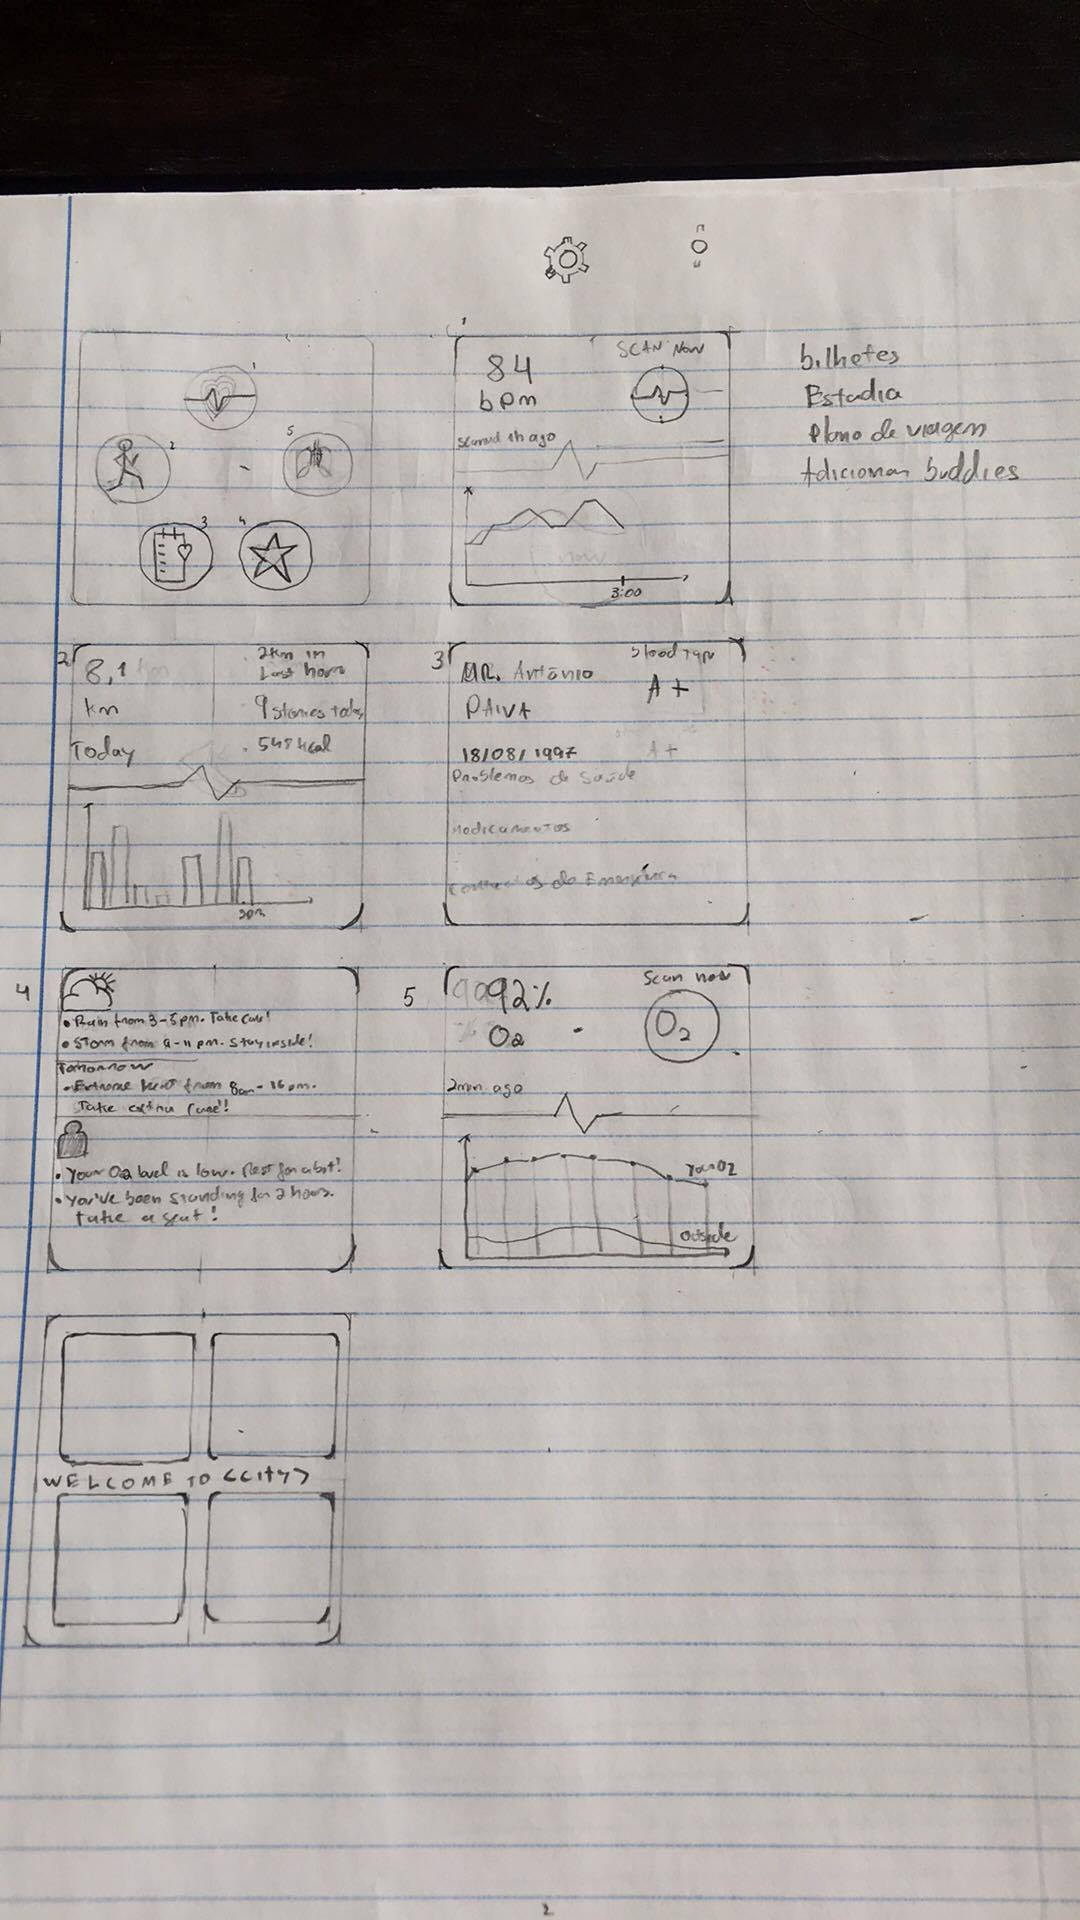 1
2
5
3
4
1
84
bpm
SCAN NOW
Scanned 1h ago
now
3:00
bilhetes
Estadia
Plano de viagem
Adicionar buddies
2
8,1 km
km
Today
2km in
Last hour
9 stories today
548 kcal
3pm
3
MR. António
PAIVA
18/08/1997
Blood type
A+
A+
Problemas de Saúde
Medicamentos
Contactos de Emergência
4
• Rain from 3-5pm. Take care!
• Storm from 9-11 pm. Stay inside!
Tomorrow
• Extreme heat from 8am-16pm.
Take extra care!!
• Your O2 level is low. Rest for a bit!
• You've been standing for 2 hours.
Take a seat!
5
92%
O2
Scan now
O2
2min ago
Your O2
Outside
WELCOME TO <CITY>
2